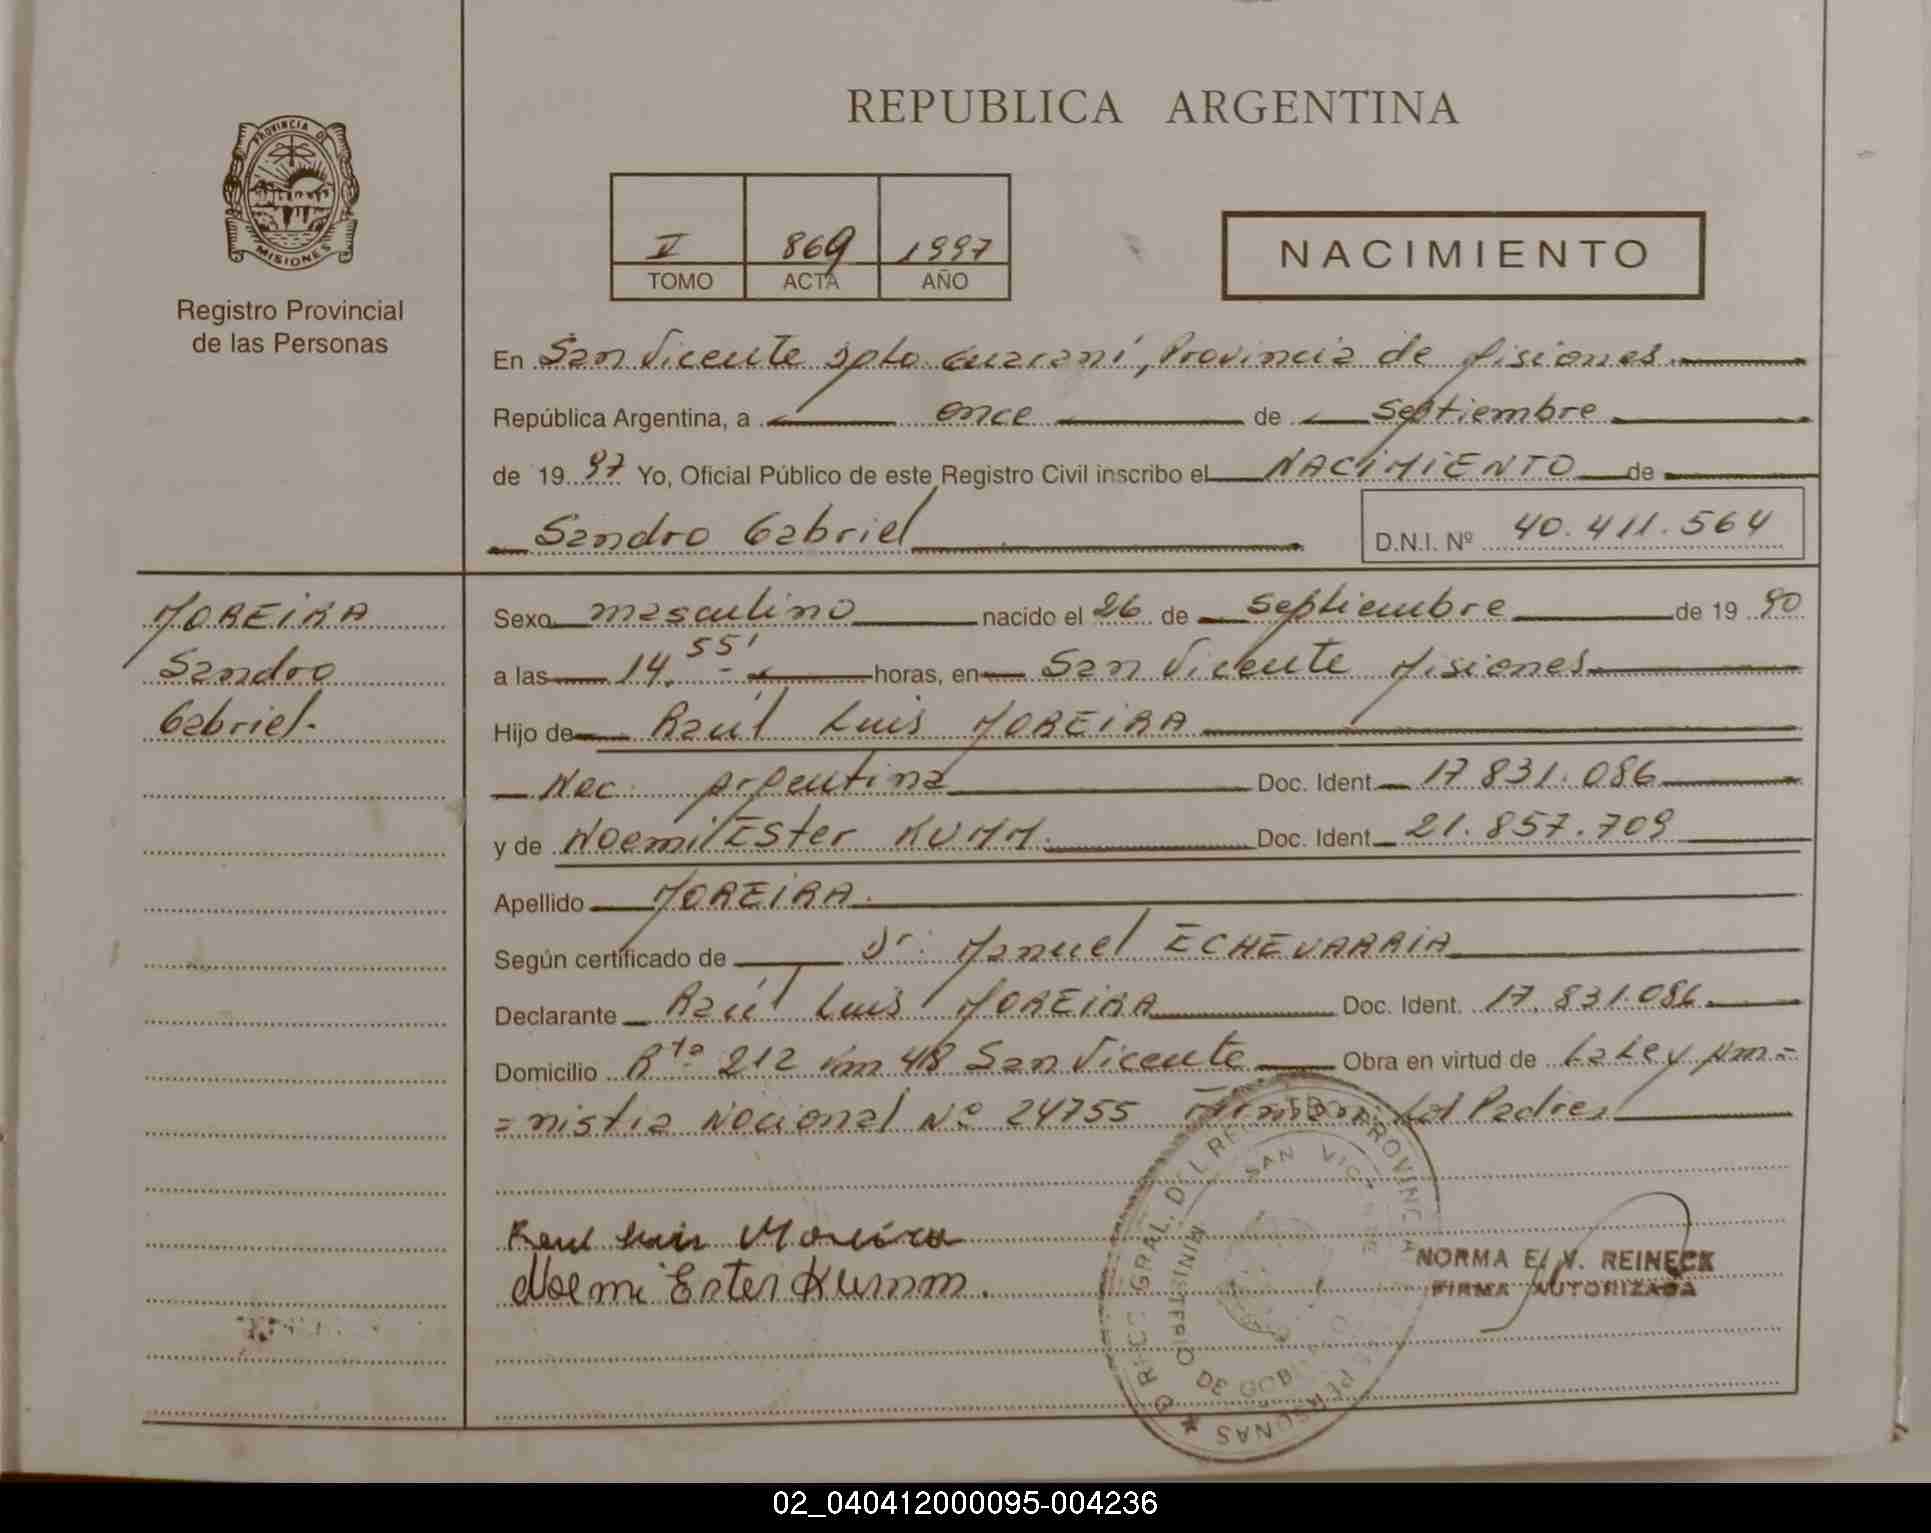 REPUBLICA ARGENTINA
PROVINCIA DE
MISIONES
Registro Provincial
de las Personas
V 869 1997
TOMO ACTA AÑO
NACIMIENTO
En San Vicente Dpto Guaraní, Provincia de Misiones
República Argentina, a once de Septiembre
de 1997 Yo, Oficial Público de este Registro Civil inscribo el NACIMIENTO de
Sandro Gabriel D.N.I. Nº 40.411.564
MOREIRA
Sandro
Gabriel.-
Sexo masculino nacido el 26 de Septiembre de 1990
a las 14.55' horas, en San Vicente Misiones
Hijo de Raúl Luis MOREIRA
Nac. Argentina Doc. Ident 17.831.086
y de Noemi Ester KUMM. Doc. Ident 21.857.709
Apellido MOREIRA.
Según certificado de Dr. Manuel ECHEVARRIA
Declarante Raúl Luis MOREIRA Doc. Ident. 17.831.086
Domicilio Rta 212 Km 48 San Vicente Obra en virtud de La Ley Am=
=nistia Nacional Nº 24755 Firman Los Padres
Raul Luis Moreira
Noemi Ester Kumm.
NORMA E. V. REINECK
FIRMA AUTORIZADA
DIRECC GRAL. DEL REG PROVINCIA PERSONAS
MINISTERIO DE GOBIERNO
SAN VICENTE
02_040412000095-004236